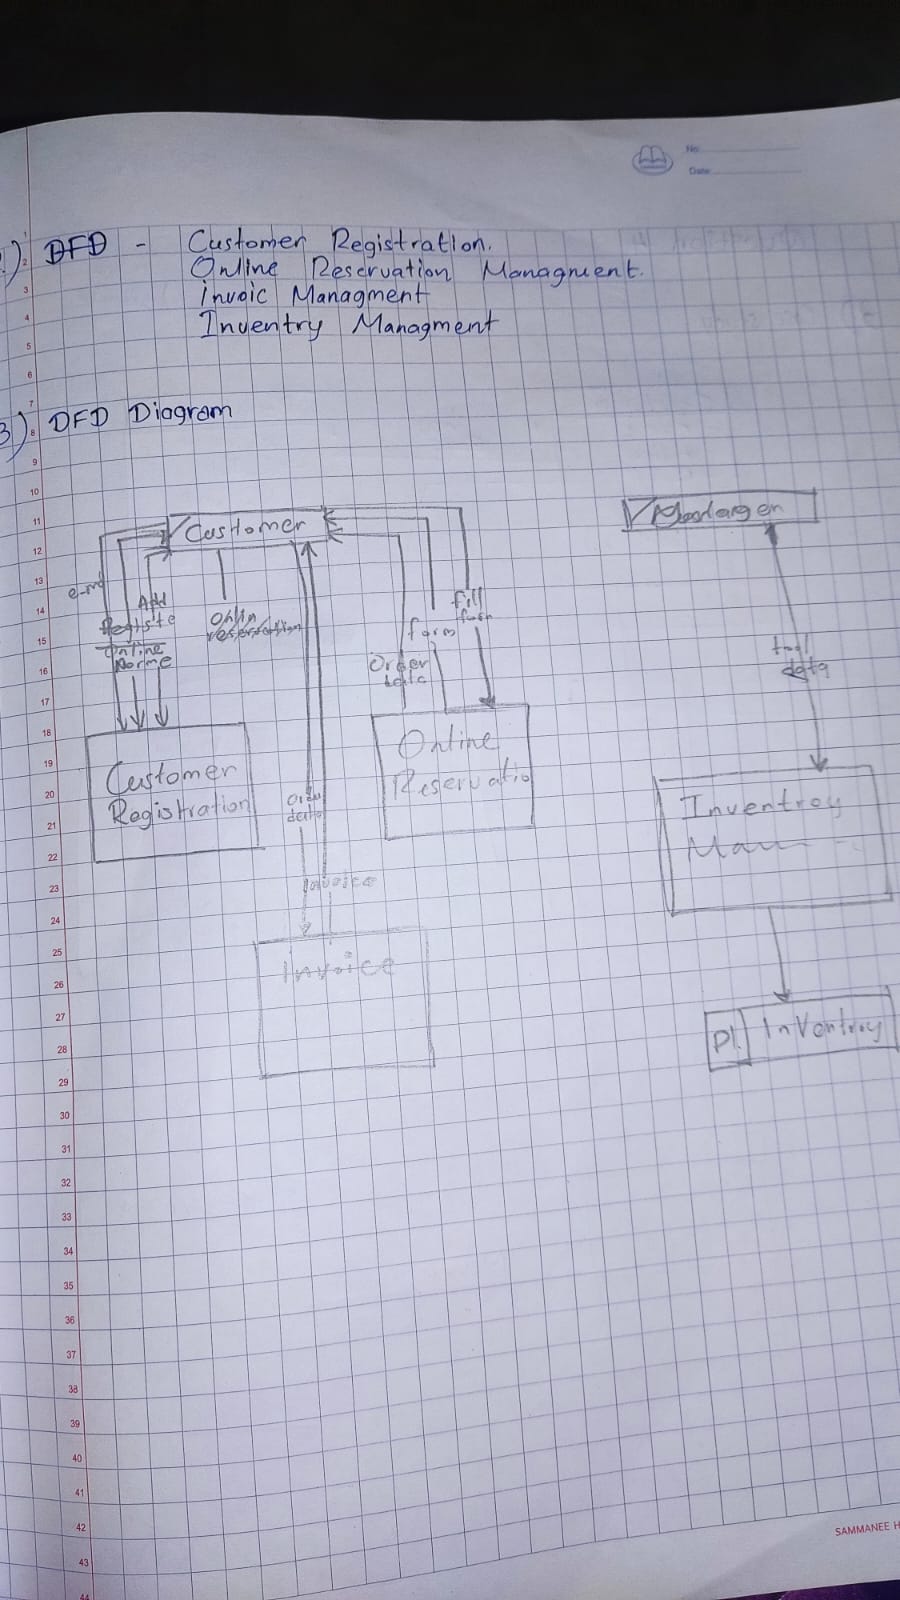 No:
Date:
2) DFD - Customer Registration.
Online Reservation Managment.
invoic Managment
Inventry Managment
3) DFD Diagram
Customer
e-m
Add
Registe
Online
Norme
Onlin
reservation
Order
data
form
fill
form
tool
data
Customer
Registration
Online
Reservatio
Order
data
Invoice
Invoice
Inventroy
Man
D1. Inventroy
1
2
3
4
5
6
7
8
9
10
11
12
13
14
15
16
17
18
19
20
21
22
23
24
25
26
27
28
29
30
31
32
33
34
35
36
37
38
39
40
41
42
43
44
SAMMANEE H